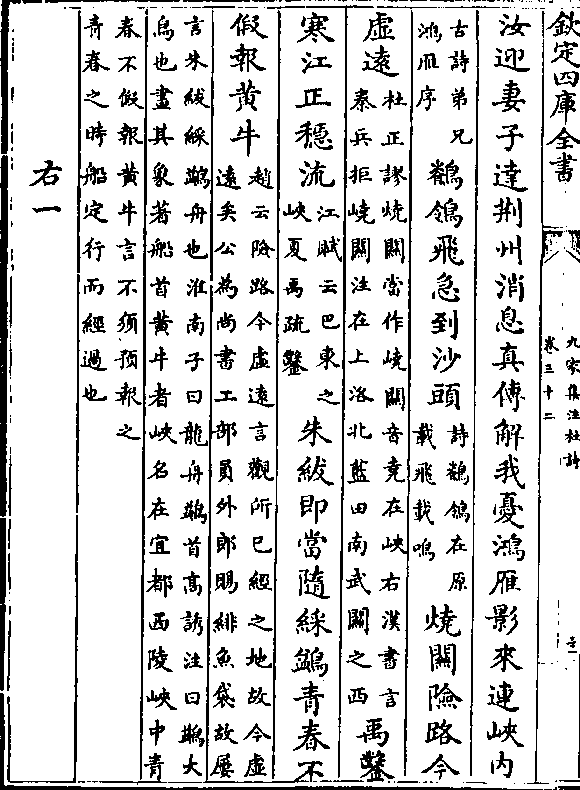 欽定四庫全書
九家集注杜詩
卷三十二
汝迎妻子達荆州消息真傳解我憂鴻雁影來連峽内
古詩弟兄
鴻雁序
鶺鴒飛急到沙頭
詩鶺鴒在原
載飛載鳴
燒關險路今
虛遠
杜正謬燒關當作嶢關音堯在峽右漢書言
秦兵拒嶢關注在上洛北藍田南武關之西
禹鑿
寒江正穩流
江賦云巴東之
峽夏禹疏鑿
朱紱即當隨綵鷁青春不
假報黄牛
趙云險路今虛遠言觀所已經之地故今虛
遠矣公為尚書工部員外郎賜緋魚袋故屢
言朱紱綵鷁舟也淮南子曰龍舟鷁首高誘注曰鷁大
鳥也畫其象著船首黄牛者峽名在宜都西陵峽中青
春不假報黄牛言不須預報之
青春之時船定行而經過也
右一